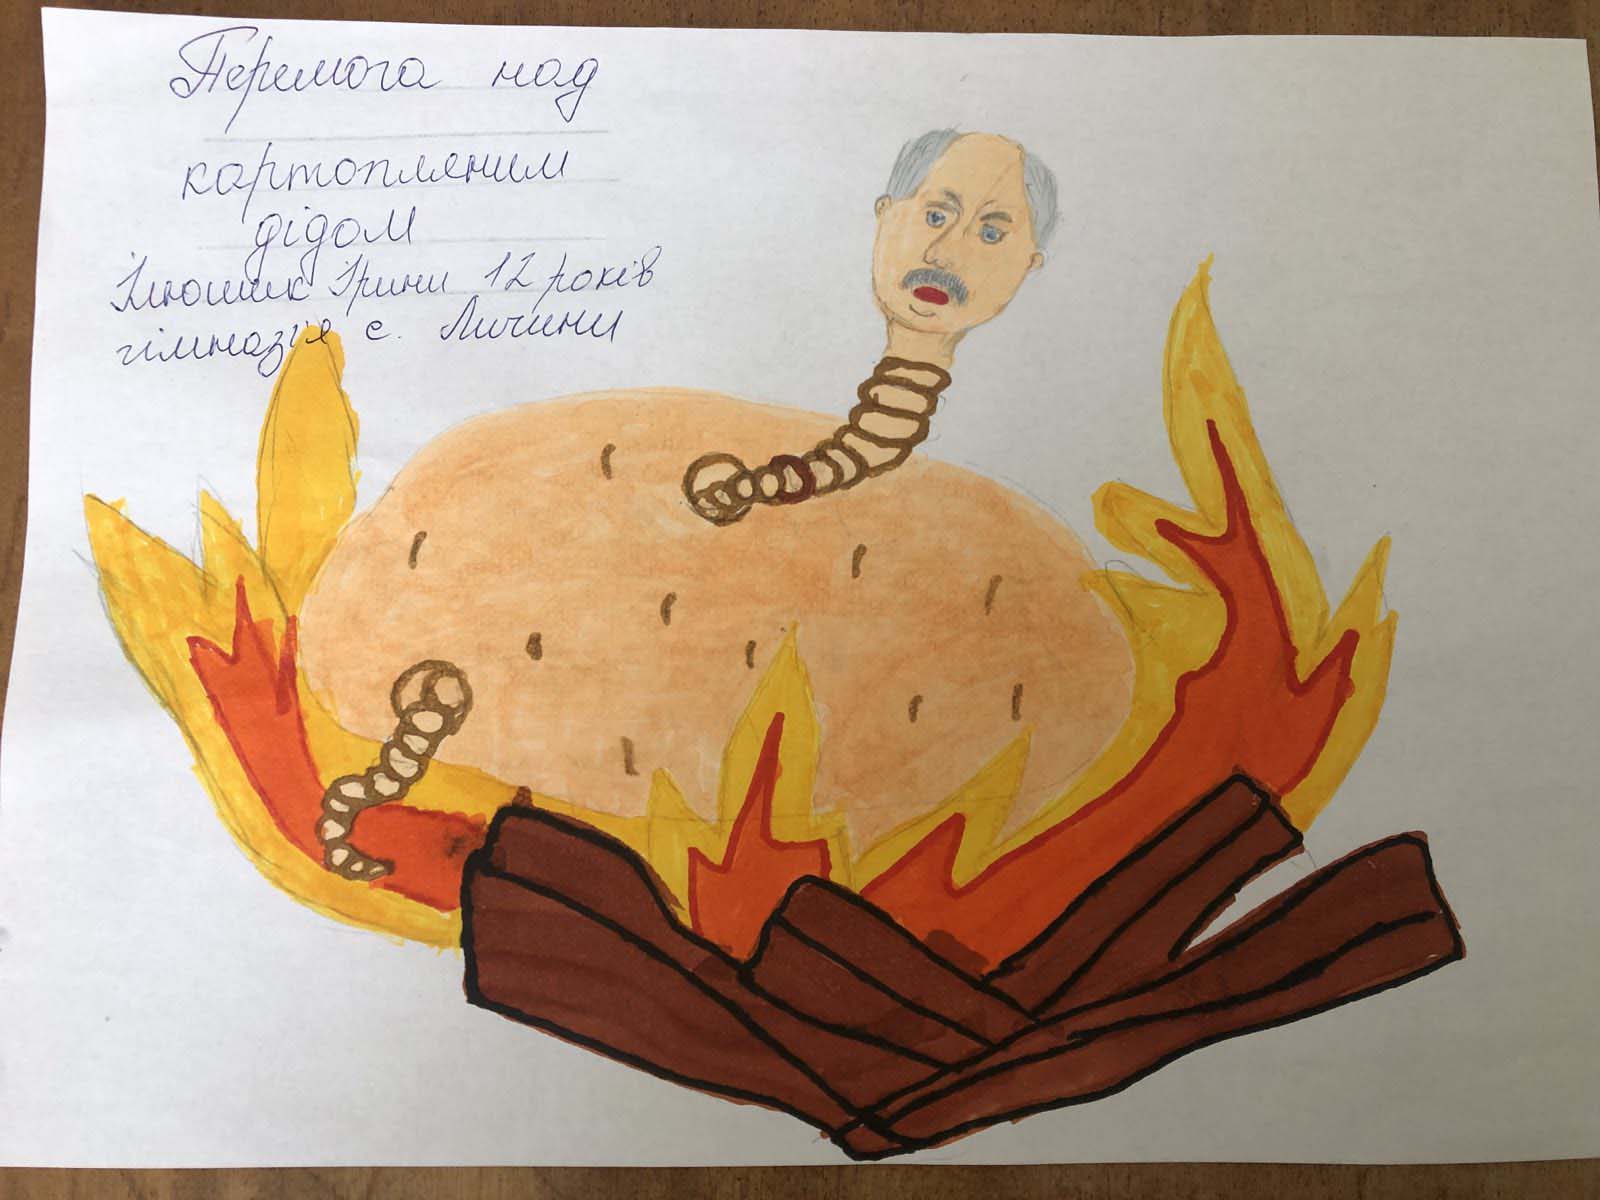 Перемога над
картопляним
дідом
Ілюшик Ірини 12 років
гімназія с. Личини